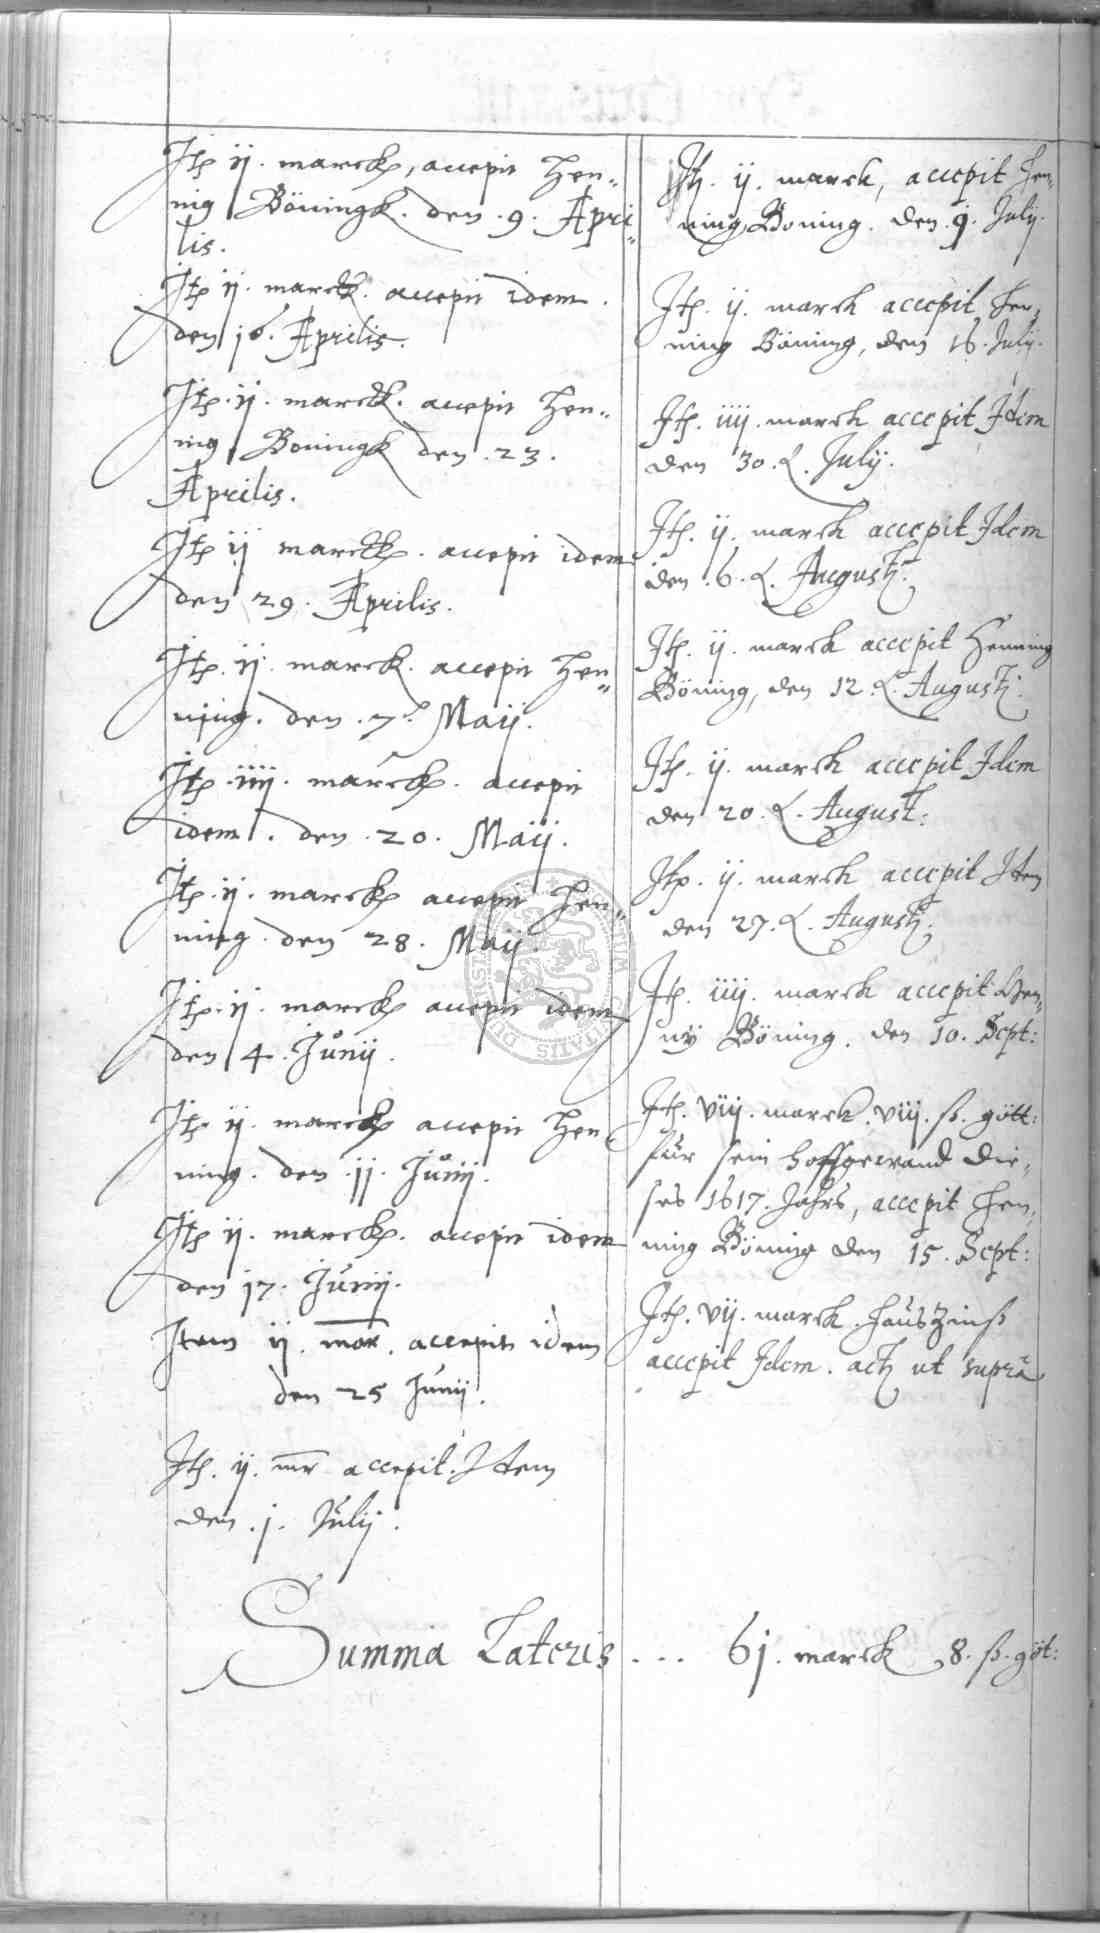 Itē ij. marck, accepit Hen„
nig Böningk. den .9. Apri„
lis.
Itē ij. marck. accepit idem.
den 16. Aprilis.
Itē. ij. marck. accepit Hen„
nig Boningk den .23.
Aprilis.
Itē ij marck. accepit idem
den 29. Aprilis.
Itē. ij. marck. accepit Hen„
ning. den .7. Maij.
Itē. iiij. marck. accepit
idem. den .20. Maij.
Itē. ij. marck accepit Hen„
ning. den 28. Maij.
Itē. ij. marck accepit idem
den 4. Junij.
Itē. ij. marck accepit Hen
ning. den .11. Junij.
Itē ij. marck. accepit idem
den 17. Junij.
Item ij. mar. accepit idem
den 25 Junij.
Itē. ij. mr accepit. Item
den .1. Julij.
Itē. ij. marck, accepit Hen„
ning Boning. den .9. July.
Itē. ij. marck accepit Hen„
ning Böning, den 16. July.
Itē. iiij. marck accepit Idem
den 30. July.
Itē. ij. marck accepit Idem
den .6. Augustj.
Itē. ij. marck accepit Henning
Böning, den 12. Augustj.
Itē. ij. marck accepit Idem
den 20. August:
Itē. ij. marck accepit Item
den 27. Augustj.
Itē. iiij. marck accepit Hen„
nij Böning. den 10. Sept:
Itē. viij. marck. viij. ß. gött:
für sein hoffgewand die„
ses 1617. Jahrs, accepit Hen„
ning Böning den 15. Sept:
Itē. vij. marck. Hauszinß
accepit Idem. act ut supra
Summa Lateris ... 61. marck 8. ß. göt: